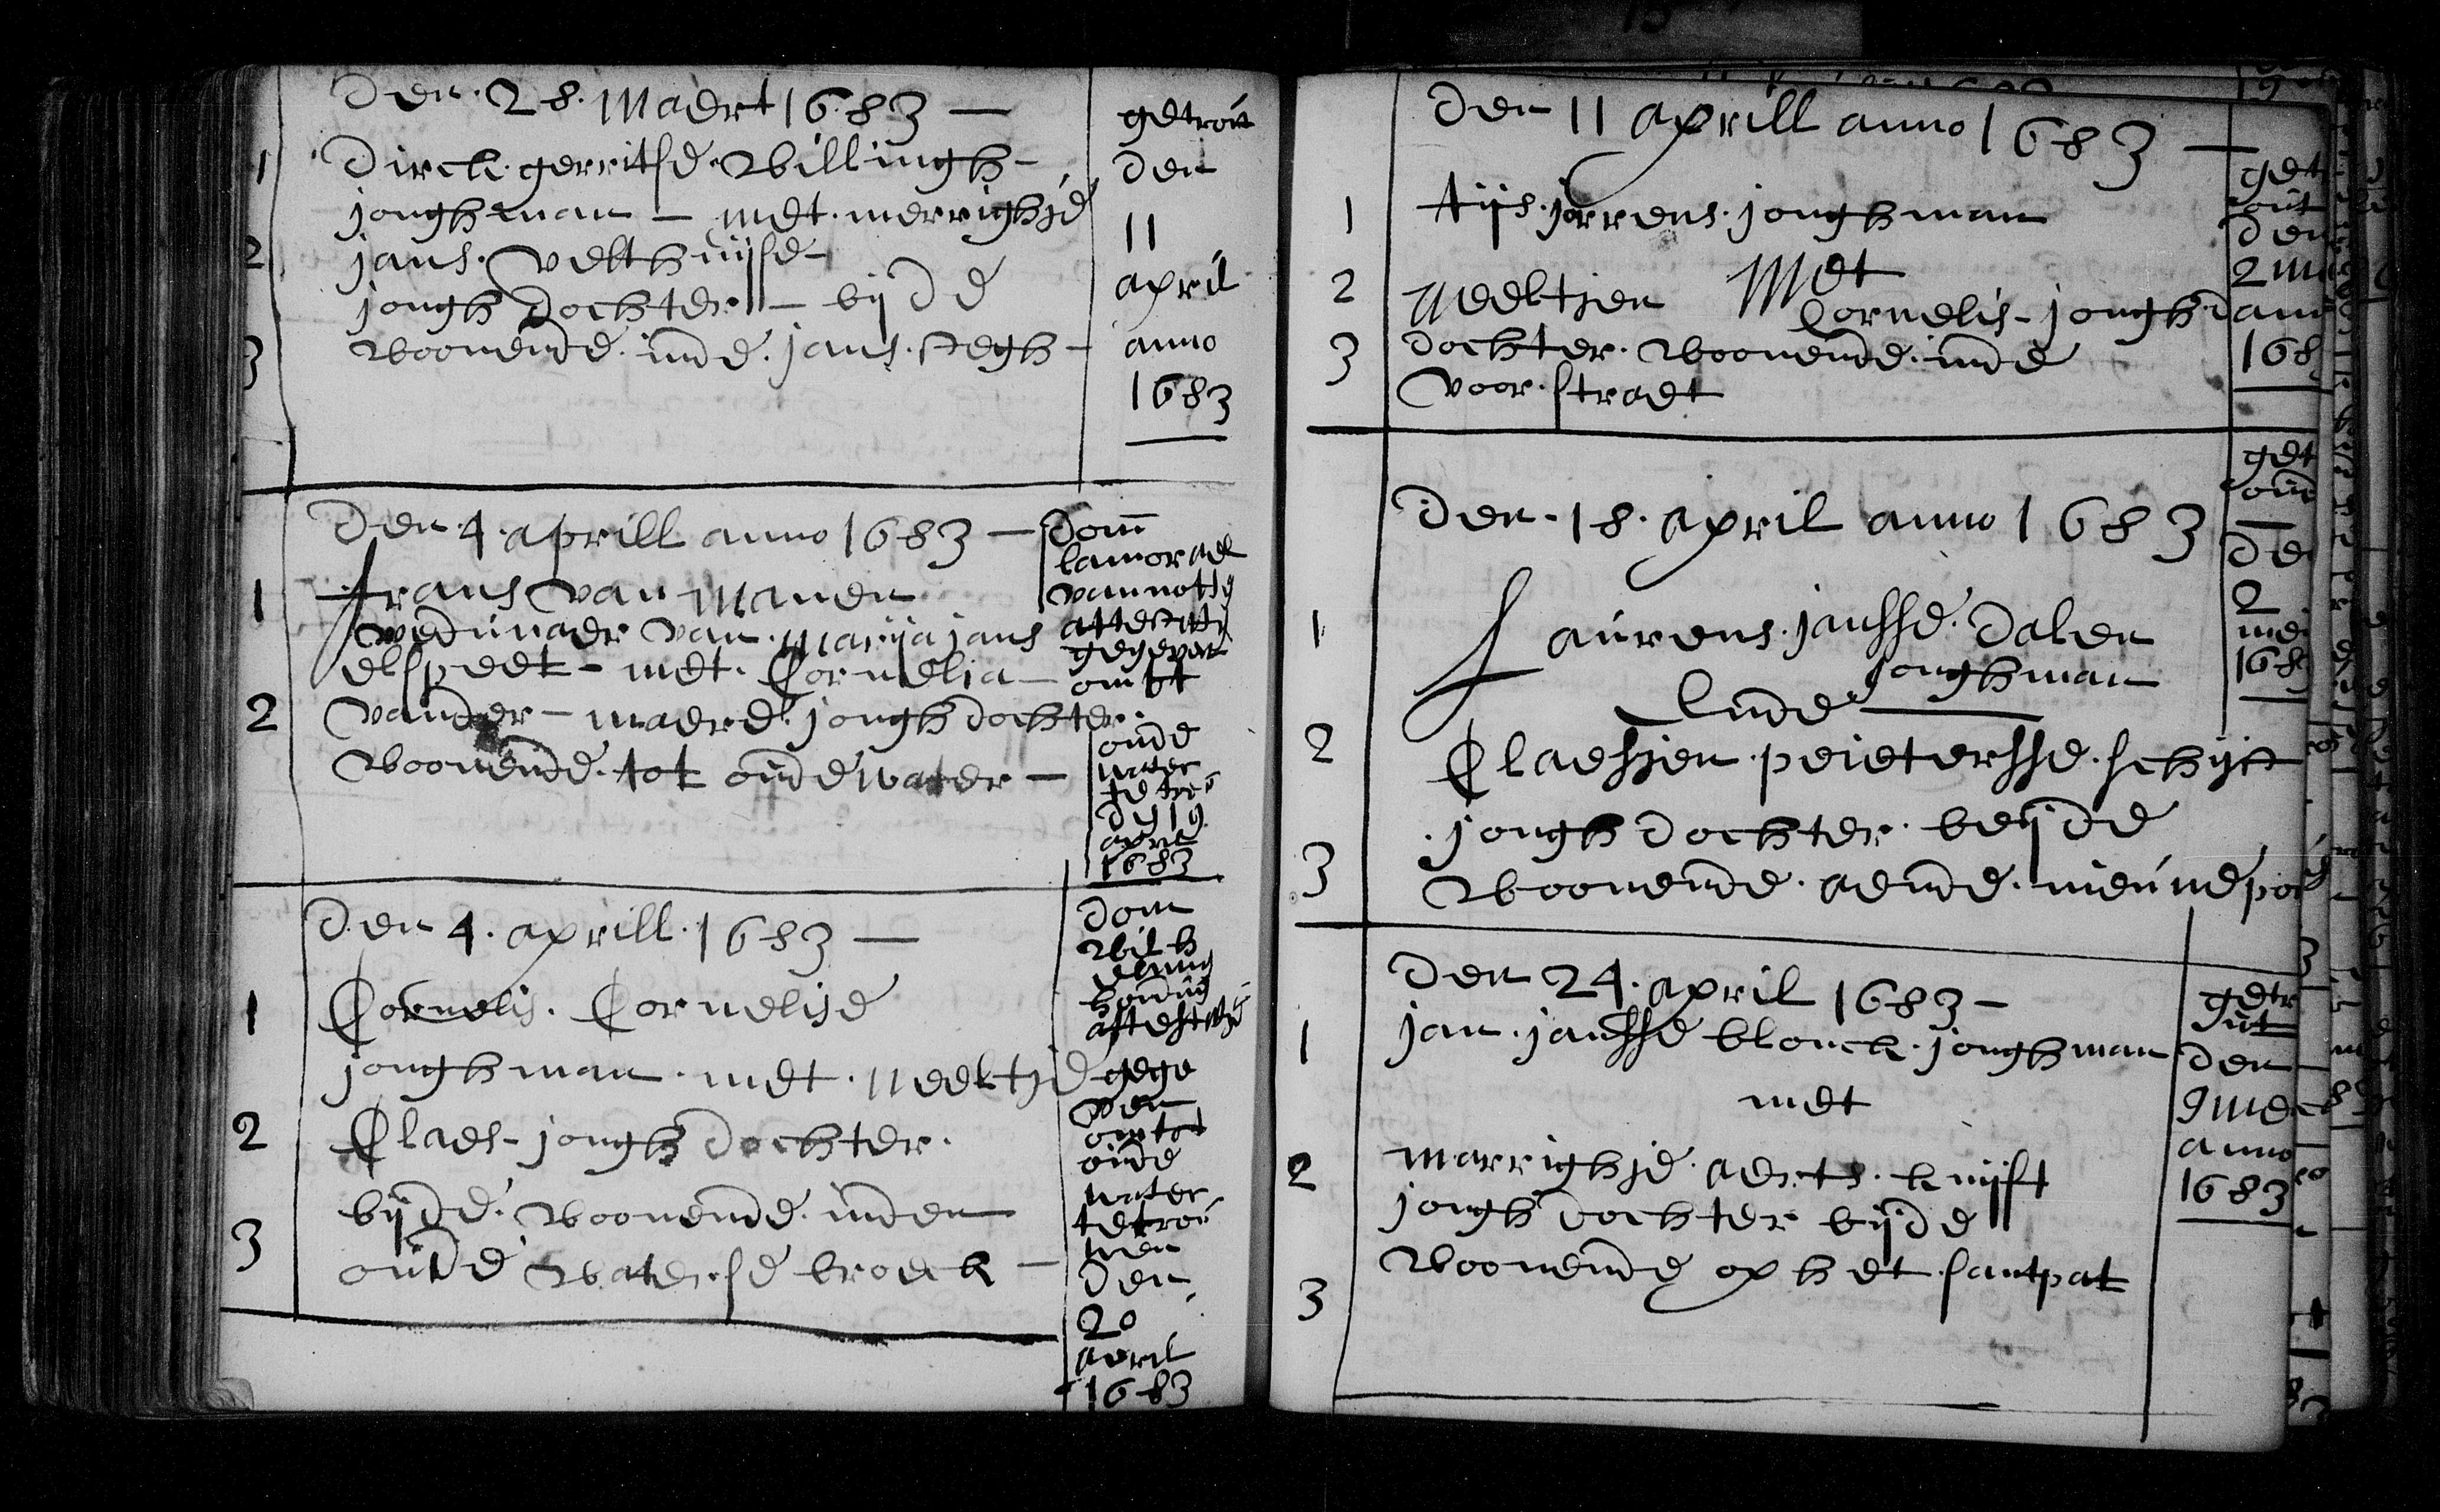 den 28. Maert 1683 —
1 dirck. gerritse. Willingh -
jonghman — met. merrighje
2 jans. velthuijse -
jongh dochter — bijde
3 woonende. inde. jans. stegh -
getrout
den
11
april
anno
1683
den 4. aprill anno 1683 —
1 frans van Manen
weduwaer van. Marija jans
elspeet - met. Cornelia -
2 vander - maere. jongh dochter.
woonende. tot oudewater —
dom
lamorael
van
attestati
gegeven
om tot
oude
water
te trou
dy 19
april
1683
den 4. aprill. 1683 —
1 Cornelis. Cornelise
jonghman. met. neeltje
2 Claes - jongh dochter.
bijde. woonende. inden
3 oude waterse broeck —
dom
wilh
attestatij
gege
ven
om tot
oude
water
te trou
wen
den
20
april
1683
den 11 aprill anno 1683 —
1 tijs. jorrens. jonghman
Met
2 Neeltjen Cornelis - jongh
3 dochter. woonende. inde
voor. straet
get
out
den
2 m
ann
168
den. 18. april anno 1683
1 Laurens. jansse. dalen
jonghman
Ende
2 Claesjen. peietersse. schijt
jongh dochter. beijde
3 woonende. aende. nieuwe po
get
out
de
2
mei
168
den 24. april 1683 —
1 jan. jansse blonck. jonghman
met
2 marrighje. aerts. kuijft
jongh dochter bijde
woonende op het santpat
3
getr
out
den
9 me
anno
1683